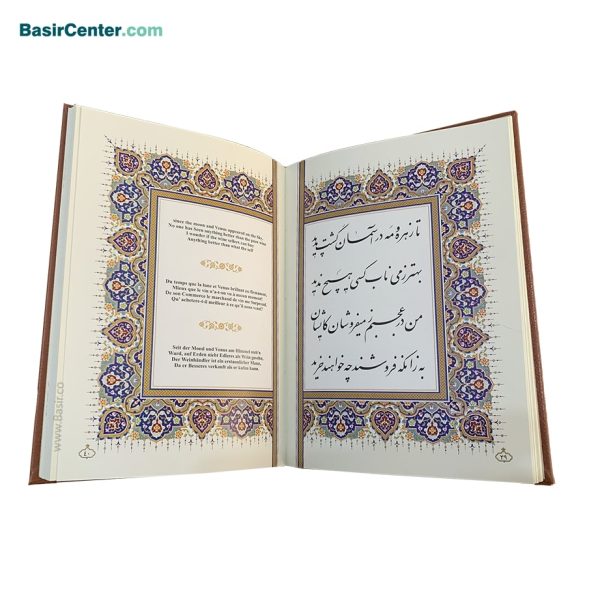 BasirCenter.com
تا زهره و مه در آسمان گشت پدید
بهتر ز می ناب کسی هیچ ندید
من در عجبم ز میفروشان کایشان
به زانکه فروشند چه خواهند خرید
since the moon and Venus appeared on the Sky,
No one has Seen anything better than the pure wine
I wonder if the wine sellers can buy
Anything better than what the sell
Du temps que la lune et Venus brillent au firmament,
Mieux que le vin n'a-t-on vu à aucun moment!
De son Commerce le marchand de vin me Surprend
Qu' achetera-t-il meilleur à ce qu'il nous vend?
Seit der Mond und Venus am Himmel
Ward, auf Erden nicht Edleres als Wein
Der Weinhändler ist ein erstaunlicher Mann,
Da er Besseres verkauft als er kaufen kann.
٤٠
www.Basir.co